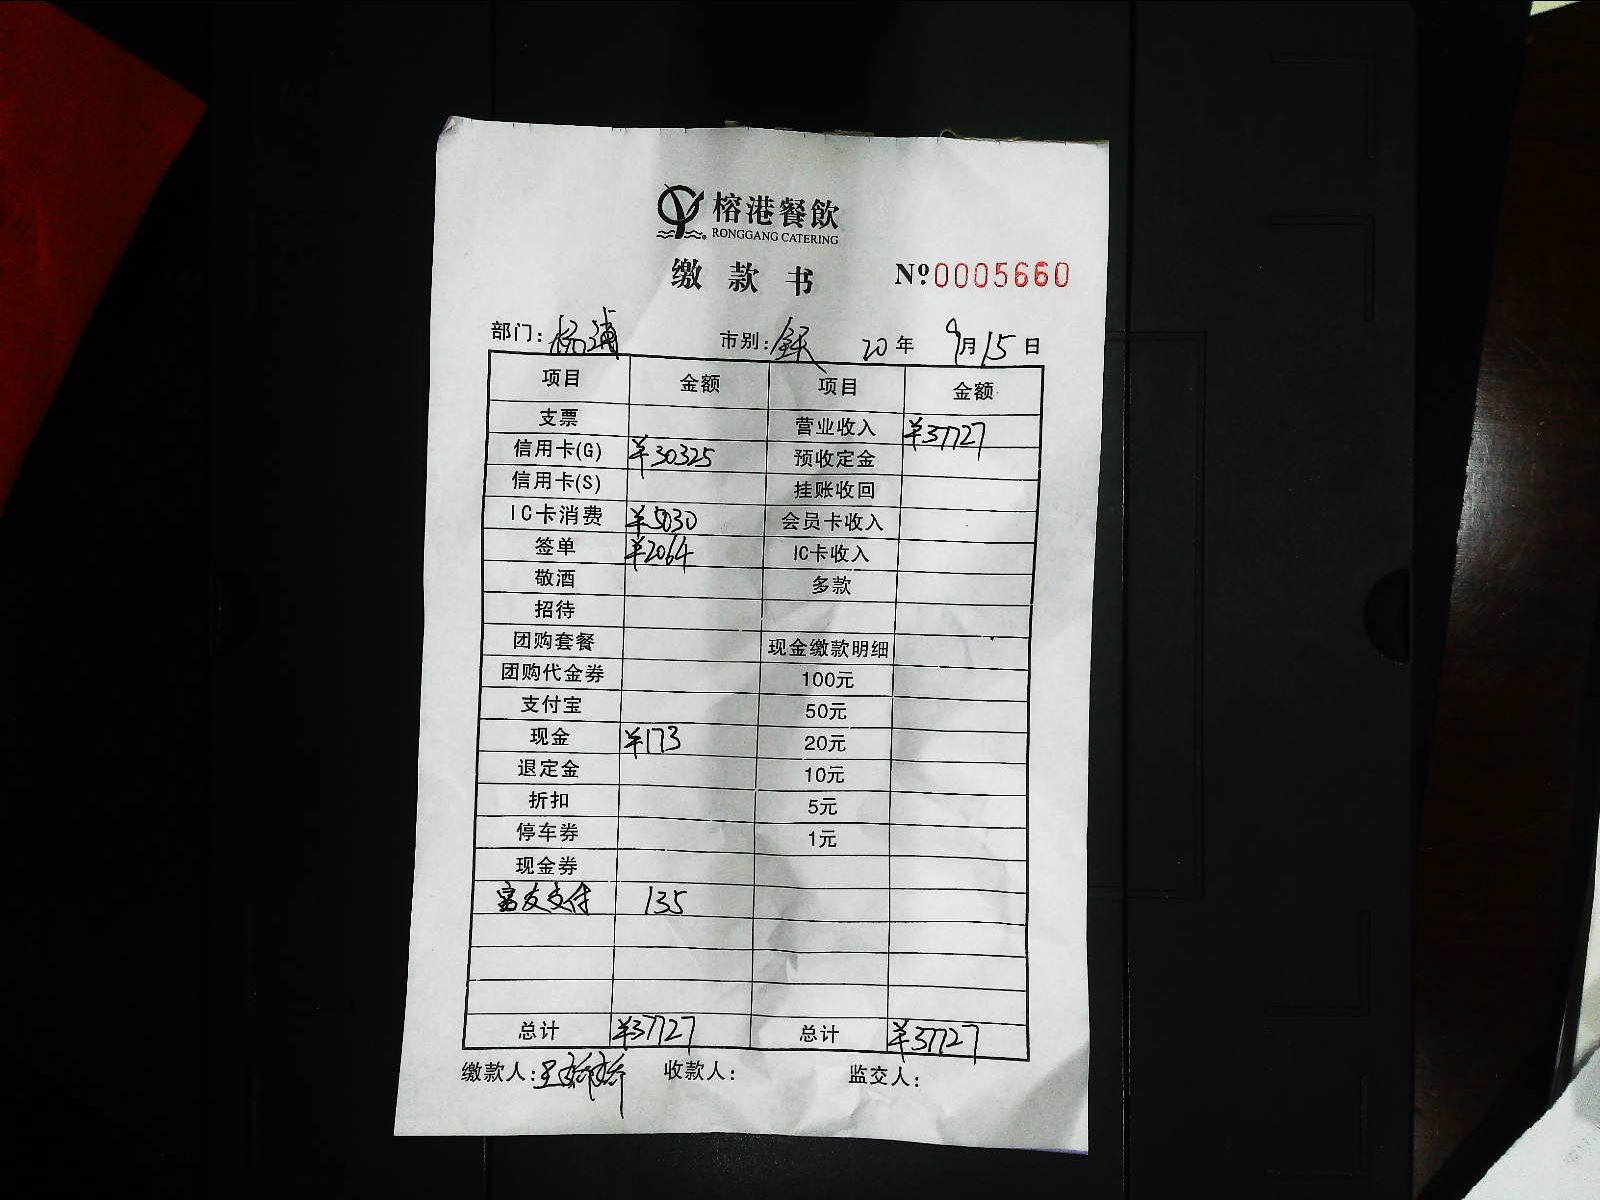 榕港餐飲
RONGGANG CATERING
缴款书 Nº 0005660
部门：杨浦 市别：全天 20年 9月15日
项目 金额 项目 金额
支票 营业收入 ¥37727
信用卡(G) ¥30325 预收定金
信用卡(S) 挂账收回
IC卡消费 ¥5030 会员卡收入
签单 ¥2064 IC卡收入
敬酒 多款
招待
团购套餐 现金缴款明细
团购代金券 100元
支付宝 50元
现金 ¥173 20元
退定金 10元
折扣 5元
停车券 1元
现金券
富友支付 135
总计 ¥37727 总计 ¥37727
缴款人：王娇娇 收款人： 监交人：